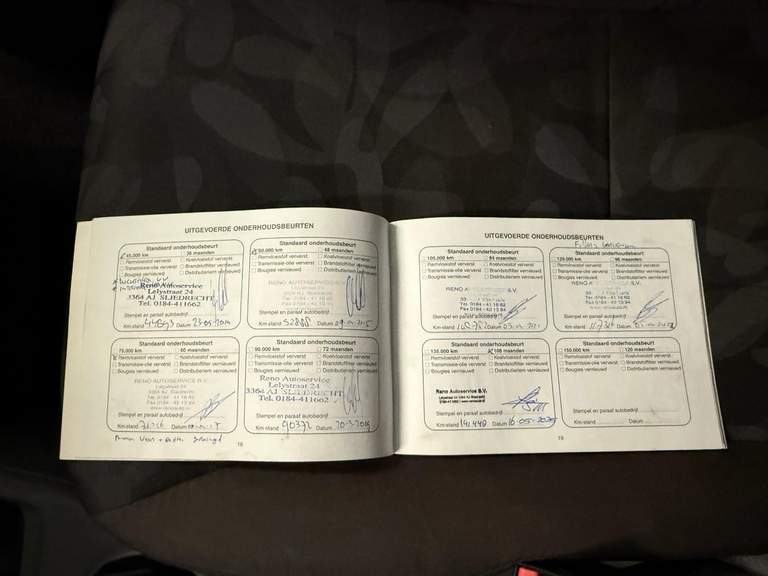 UITGEVOERDE ONDERHOUDSBEURTEN
Standaard onderhoudsbeurt
45.000 km 36 maanden
Remvloeistof ververst Koelvloeistof ververst
Transmissie-olie ververst Brandstoffilter vernieuwd
Bougies vernieuwd Distributieriem vernieuwd
Reno Autoservice
Lelystraat 24
3364 AJ SLIEDRECHT
Tel. 0184-411662
Stempel en paraaf autobedrijf
Km-stand Datum
Standaard onderhoudsbeurt
60.000 km 48 maanden
Remvloeistof ververst Koelvloeistof ververst
Transmissie-olie ververst Brandstoffilter vernieuwd
Bougies vernieuwd Distributieriem vernieuwd
RENO AUTOSERVICE
Stempel en paraaf autobedrijf
Km-stand 52888 Datum
Standaard onderhoudsbeurt
75.000 km 60 maanden
Remvloeistof ververst Koelvloeistof ververst
Transmissie-olie ververst Brandstoffilter vernieuwd
Bougies vernieuwd Distributieriem vernieuwd
RENO AUTOSERVICE B.V.
Stempel en paraaf autobedrijf
Km-stand Datum
Standaard onderhoudsbeurt
90.000 km 72 maanden
Remvloeistof ververst Koelvloeistof ververst
Transmissie-olie ververst Brandstoffilter vernieuwd
Bougies vernieuwd Distributieriem vernieuwd
Reno Autoservice
Lelystraat 24
3364 AJ SLIEDRECHT
Tel. 0184-411662
Stempel en paraaf autobedrijf
Km-stand 90372 Datum
18
UITGEVOERDE ONDERHOUDSBEURTEN
Standaard onderhoudsbeurt
105.000 km 84 maanden
Remvloeistof ververst Koelvloeistof ververst
Transmissie-olie ververst Brandstoffilter vernieuwd
Bougies vernieuwd Distributieriem vernieuwd
Stempel en paraaf autobedrijf
Km-stand Datum
Standaard onderhoudsbeurt
120.000 km 96 maanden
Remvloeistof ververst Koelvloeistof ververst
Transmissie-olie ververst Brandstoffilter vernieuwd
Bougies vernieuwd Distributieriem vernieuwd
Stempel en paraaf autobedrijf
Km-stand Datum
Standaard onderhoudsbeurt
135.000 km 108 maanden
Remvloeistof ververst Koelvloeistof ververst
Transmissie-olie ververst Brandstoffilter vernieuwd
Bougies vernieuwd Distributieriem vernieuwd
Reno Autoservice B.V.
Stempel en paraaf autobedrijf
Km-stand 141.440 Datum 16-05-2025
Standaard onderhoudsbeurt
150.000 km 120 maanden
Remvloeistof ververst Koelvloeistof ververst
Transmissie-olie ververst Brandstoffilter vernieuwd
Bougies vernieuwd Distributieriem vernieuwd
Stempel en paraaf autobedrijf
Km-stand Datum
19